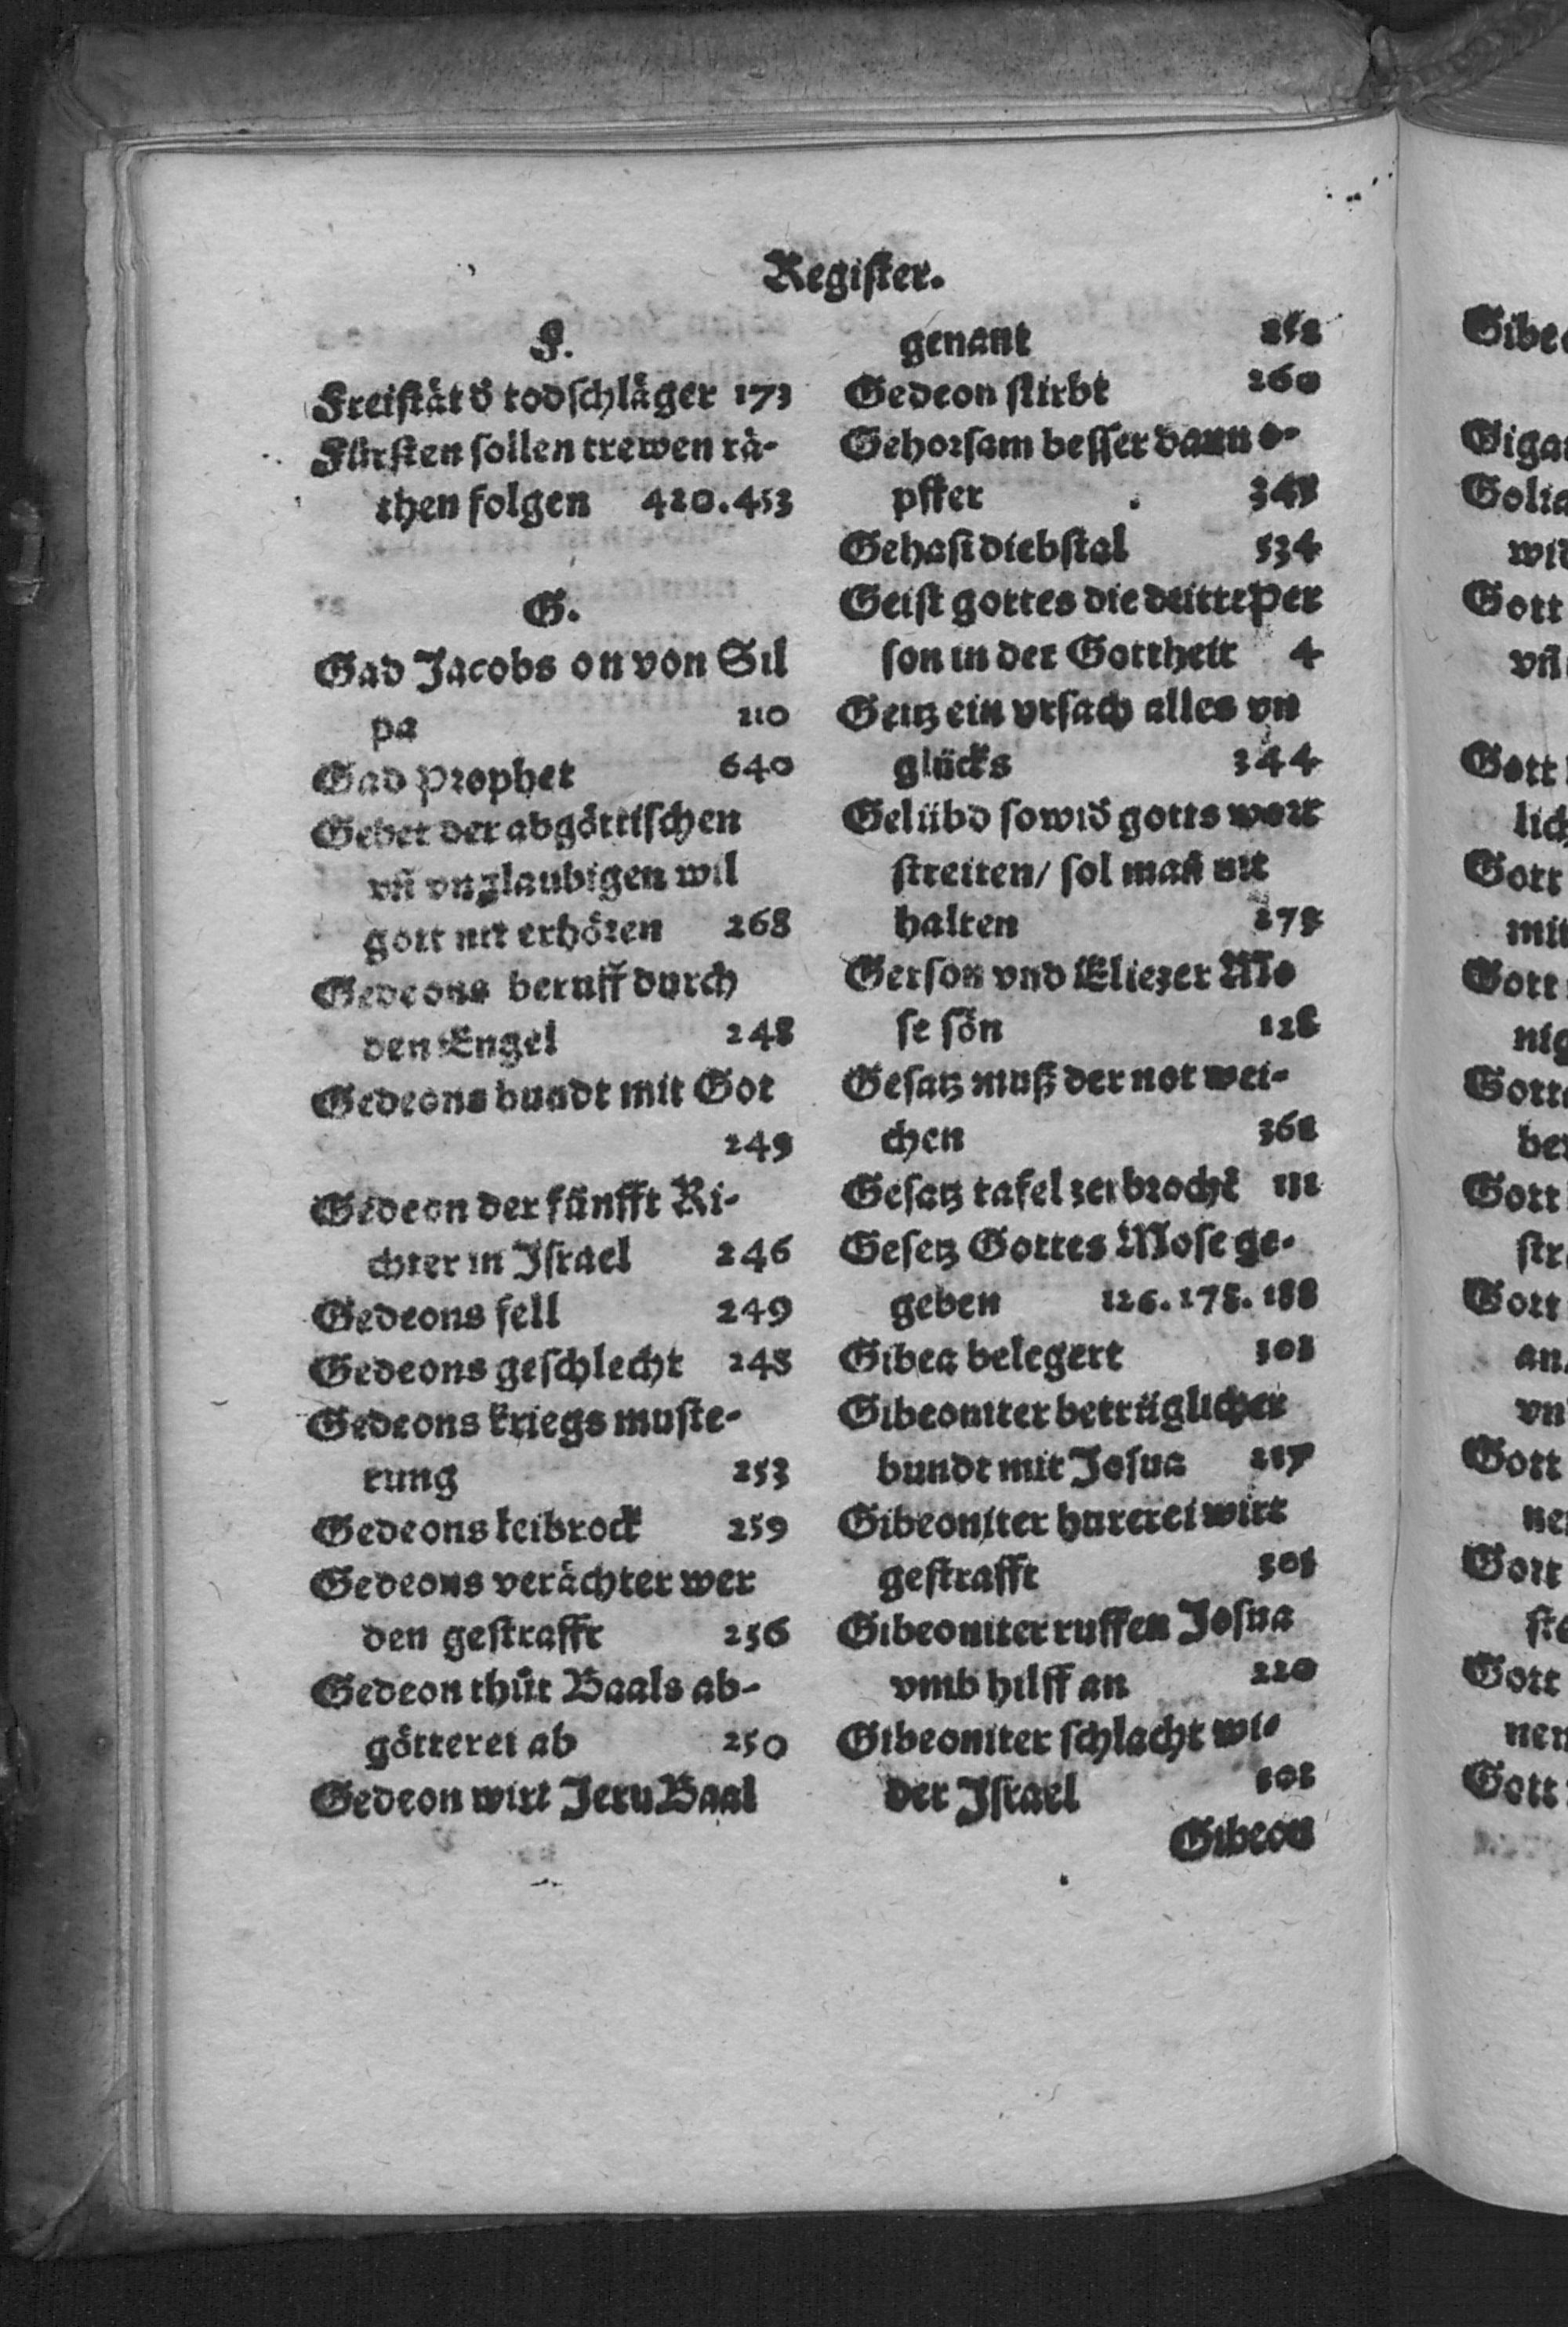 Regiſter.
F.
Freiſtåt d̾ todſchlåger 173
Fürſten ſollen trewen rå-
then folgen 420.453
G.
Gad Jacobs on von Sil
pa 210
Gad prophet 640
Gebet der abgöttiſchen
vñ vnglaubigen wil
gott nit erhözen 268
Gedeons beruff durch
den Engel 248
Gedeons bundt mit Got
249
Gedeon der fünfft Ri-
chter in Iſrael 246
Gedeons fell 249
Gedeons geſchlecht 248
Gedeons kriegs muſte-
rung 253
Gedeons leibrock 259
Gedeons verächter wer
den geſtrafft 256
Gedeon thůt Baals ab-
götterei ab 250
Gedeon wirt Jeru Baal
genant 252
Gedeon ſtirbt 260
Gehorſam beſſer dann o-
pffer
Gehaſi diebſtal 534
Geiſt gottes die dritte per
ſon in der Gottheit 4
Geitz ein vrſach alles vn
glücks 344
Gelübd ſo wid̾ gotts wort
ſtreiten/ ſol mañ nit
halten
Gerſon vnd Eliezer Mo
ſe ſön 128
Geſatz muß der not wei-
chen
Geſatz tafel zerbrochẽ
Geſetz Gottes Moſe ge-
geben
Gibea belegert
Gibeoniter betrüglicher
bundt mit Joſua 217
Gibeoniter hurerei wirt
geſtrafft
Gibeoniter ruffen Joſua
vmb hilff an 220
Gibeoniter ſchlacht wi-
der Iſrael
Gibeon
Gott
vñ
Gott
Gott
mit
Gott
Gott
Gott
Gott
Gott
Gott
Gott
Gott